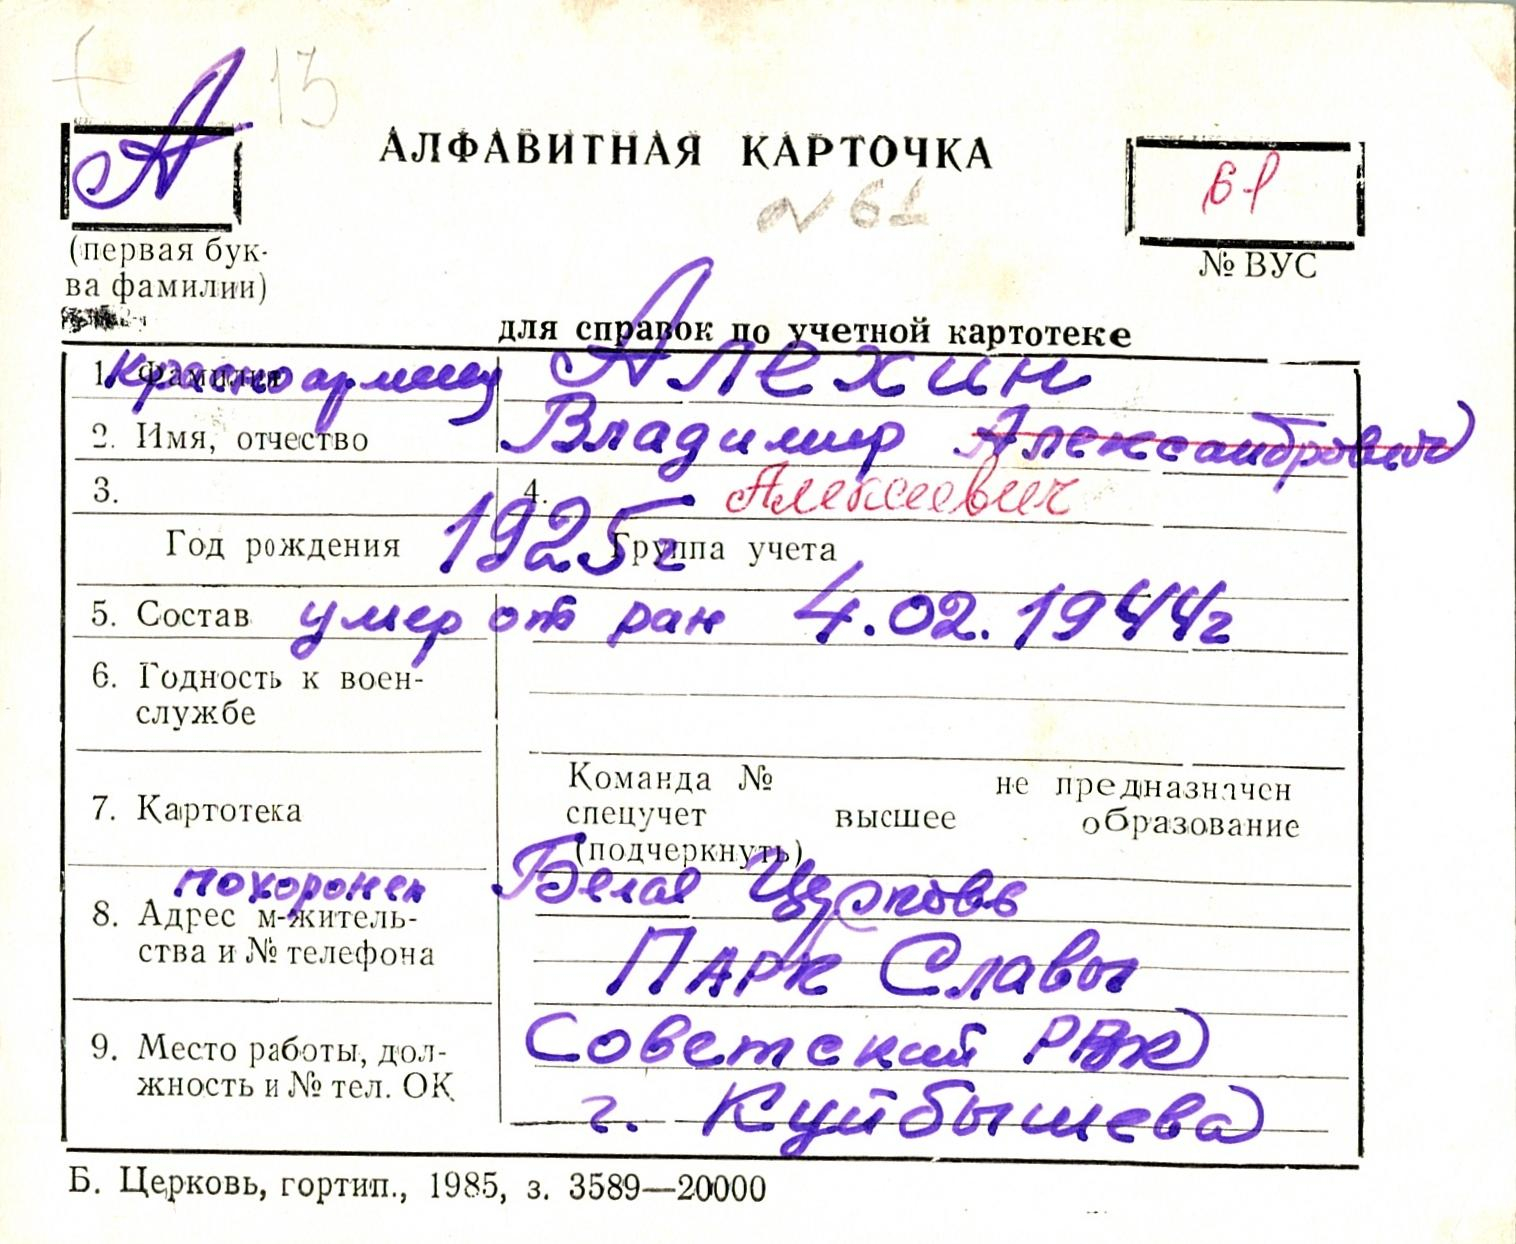 13
А
АЛФАВИТНАЯ КАРТОЧКА
№ 61
61
(первая бук-
ва фамилии)
№ ВУС
для справок по учетной картотеке
1. Фамилия красноармеец Алехин
2. Имя, отчество Владимир Александрович
3. 4. Алексеевич
Год рождения 1925 г Группа учета
5. Состав умер от ран 4.02.1944г
6. Годность к воен-
службе
7. Картотека
Команда № не предназначен
спецучет высшее образование
(подчеркнуть)
похоронен Белая Церковь
8. Адрес м-житель-
ства и № телефона
Парк Славы
9. Место работы, дол-
жность и № тел. ОК
Советский РВК
г. Куйбышева
Б. Церковь, гортип., 1985, з. 3589—20000